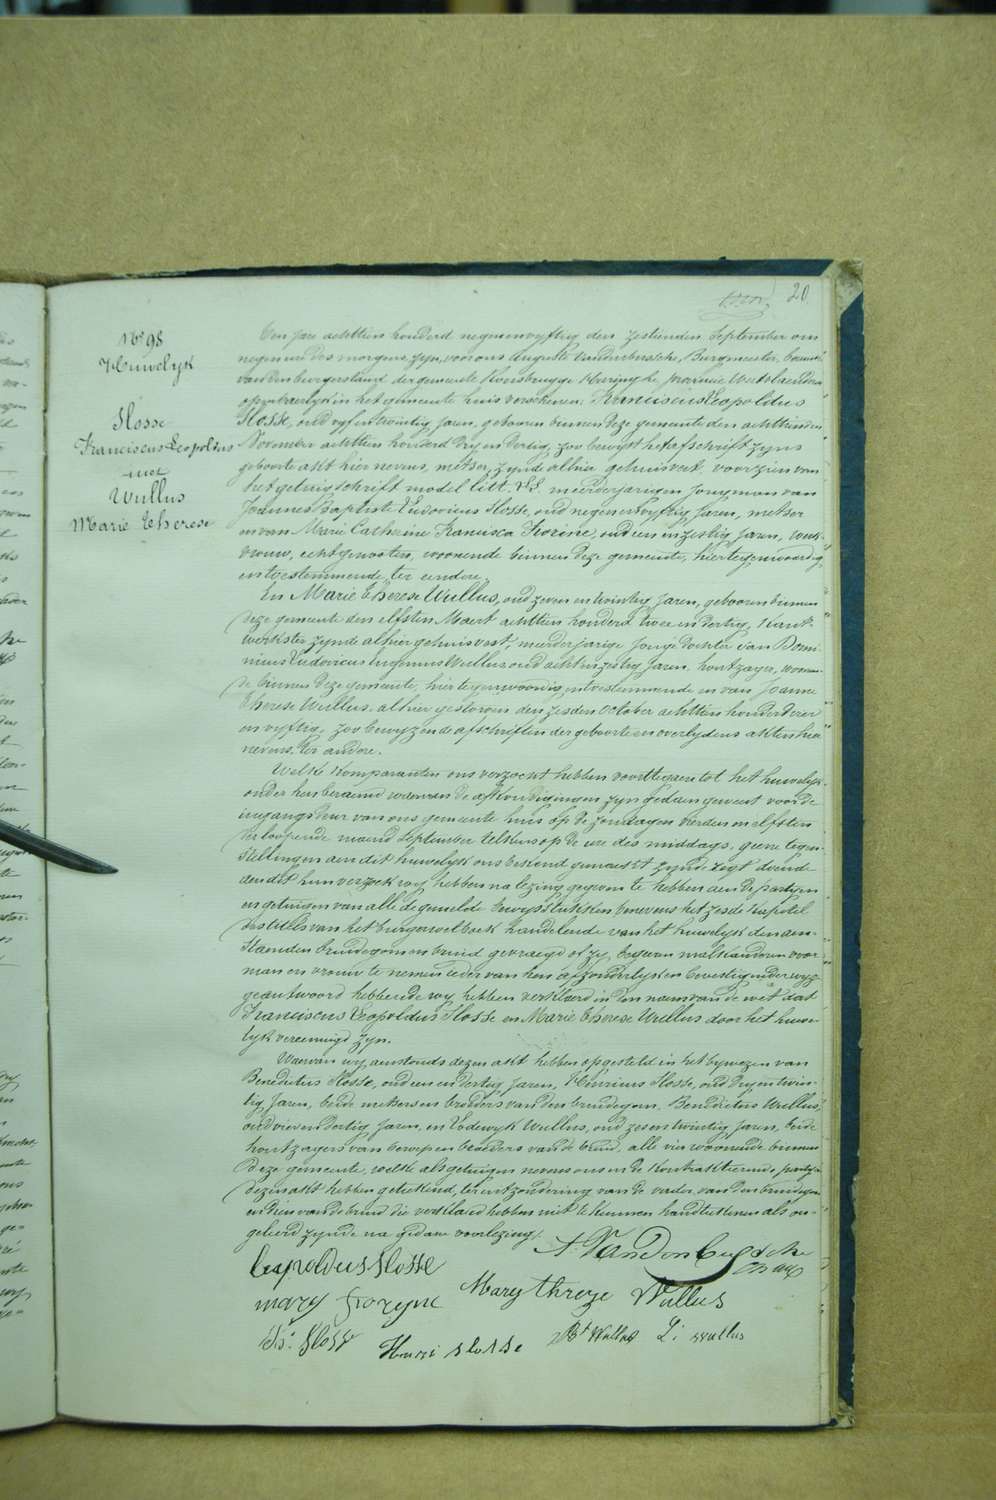 20
N° 98
Huwelyk
Slosse
Franciscus Leopoldus
met
Wullus
Marie Therese
Een Jaer achttien honderd negenenvyftig den zestienden September om
negen ure des morgens, zyn, voor ons Auguste Vandenbussche, Burgmeester,
van den burgerstand der gemeente Roesbrugge Haringhe, provincie Westvlaenderen
openbaerlyk in het gemeente huis verschenen: Franciscus Leopoldus
Slosse, oud vyfentwintig Jaren, geboren binnen deze gemeente den achttienden
November achttien honderd dry en dertig, zoo bewyst het afschrift zyns
geboorte akt hier nevens, metser, zynde alhier gehuisvest, voorzien van
het getuigschrift model litt. meerderjarigen jongman van
Joannes Baptiste Ludovicus Slosse, oud negenenvyftig Jaren, metser
en van Marie Catherine Francisca Frozine, oud een en zestig Jaren, huis-
vrouw, echtgenooten, woonende binnen deze gemeente, hier tegenwoordig
en toestemmende, ter eendere.
En Marie Therese Wullus, oud zeven en twintig Jaren, geboren binnen
deze gemeente den elfsten Maert achttien honderd twee en dertig, Kant-
werkster zynde alhier gehuisvest, meerderjarige Jonge dochter van Domi-
nicus Ludovicus Eugenius Wullus oud acht en zestig Jaren, houtzager, woonen-
de binnen deze gemeente, hier tegenwoordig en toestemmende en van Joanna
Therese Wullus, alhier gestorven den zesden October achttien honderd
en vyftig, zoo bewyzen de afschriften der geboorte en overlydens akten hier
nevens, ter andere.
Welke Komparanten ons verzocht hebben voorttegaen tot het huwelyk
onder hen beraemd waervan de afkondigingen zyn gedaen geweest voor de
ingangdeur van ons gemeente huis op de zondagen vierden en elfsten
der loopende maend September telkens op de ure des middags, geene tegen-
stellingen aen dit huwelyk ons bekend gemaekt zynde, regt doende
aen dit hun verzoek wy hebben na lezing gegeven te hebben aen de partyen
en getuigen van alle de gemelde bewysstukken benevens het zesde Kapitel
des titels van het burgerwetboek handelende van het huwelyk den aen-
staenden bruidegom en bruid gevraegd of zy begeeren malkanderen voor
man en vrouw te nemen ieder van hen afzonderlyk en bevestigender wyze
geantwoord hebbende wy hebben verklaerd in den naem van de wet dat
Franciscus Leopoldus Slosse en Marie Therese Wullus door het huwe-
lyk vereenigd zyn.
Waervan wy aenstonds dezen akt hebben opgesteld in het bywezen van
Benedictus Slosse, oud een en dertig Jaren, Henricus Slosse, oud dry en twin-
tig Jaren, beide metsers en broeders van den bruidegom, Benedictus Wullus,
oud vier en dertig Jaren, en Lodewyk Wullus, oud zes en twintig Jaren, beide
houtzagers van beroep en broeders van de bruid, alle vier woonende binnen
deze gemeente, welke als getuigen nevens ons en de Kontrakteerende partyen
dezen akt hebben geteekend, ter uitzondering van de vader van den bruidegom
en dien van de bruid die verklaerd hebben niet te kunnen handteekenen als on-
geleerd zynde na gedane voorlezing.
A. Vandenbussche
Leopoldus Slosse
Mary Threze Wullus
mary frozyne
Bs. Slosse Henri Slosse Bt Wullus L: wullus